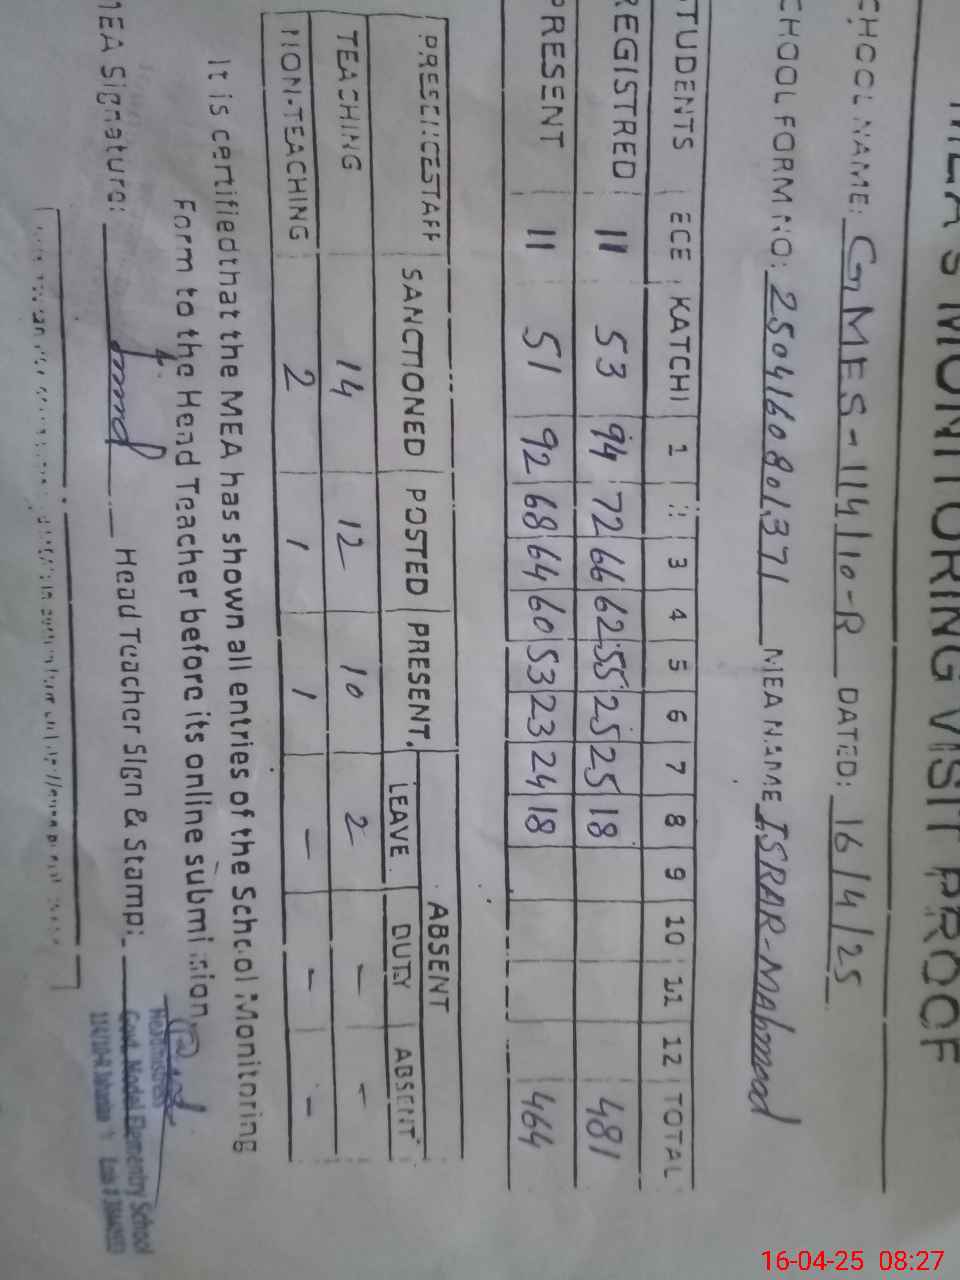 MEA'S MONITORING VISIT PROOF
CHOOL NAME: GMES-114/10-R DATED: 16/4/25
CHOOL FORM NO: 2504160801371 MEA NAME ISRAR-Mahmood
TUDENTS ECE KATCHI 1 2 3 4 5 6 7 8 9 10 11 12 TOTAL
REGISTRED 11 53 94 72 66 62 55 25 25 18 481
PRESENT 11 51 92 68 64 60 53 23 24 18 464
PRESENCE STAFF SANCTIONED POSTED PRESENT ABSENT
LEAVE DUTY ABSENT
TEACHING 14 12 10 2 - -
NON-TEACHING 2 1 1 - - -
It is certified that the MEA has shown all entries of the School Monitoring
Form to the Head Teacher before its online submission
MEA Signature: Head Teacher Sign & Stamp:
Headmistress
Govt. Model Elementry School
114/10-R
16-04-25 08:27